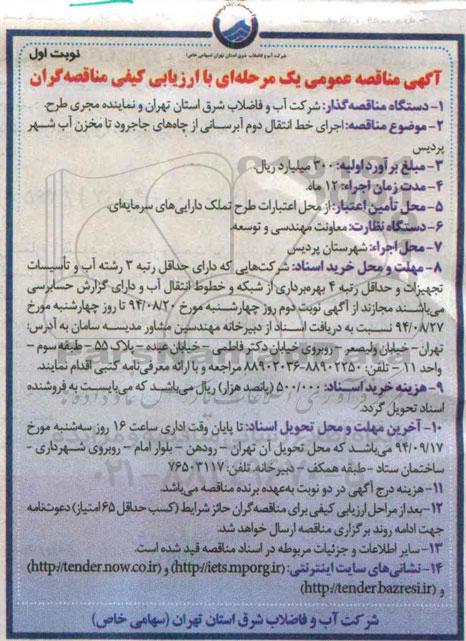 شرکت آب و فاضلاب شرق استان تهران (سهامی خاص)
نوبت اول
آگهی مناقصه عمومی یک مرحله‌ای با ارزیابی کیفی مناقصه‌گران
۱- دستگاه مناقصه‌گذار: شرکت آب و فاضلاب شرق استان تهران و نماینده مجری طرح.
۲- موضوع مناقصه: اجرای خط انتقال دوم آبرسانی از چاه‌های جاجرود تا مخزن آب شهر
پردیس
۳- مبلغ برآورد اولیه: ۳۰۰ میلیارد ریال.
۴- مدت زمان اجراء: ۱۲ ماه.
۵- محل تأمین اعتبار: از محل اعتبارات طرح تملک دارایی‌های سرمایه‌ای.
۶- دستگاه نظارت: معاونت مهندسی و توسعه.
۷- محل اجراء: شهرستان پردیس
۸- مهلت و محل خرید اسناد: شرکت‌هایی که دارای حداقل رتبه ۳ رشته آب و تأسیسات
تجهیزات و حداقل رتبه ۴ بهره‌برداری از شبکه و خطوط انتقال آب و دارای گزارش حسابرسی
می‌باشند مجازند از آگهی نوبت دوم روز چهارشنبه مورخ ۹۴/۰۸/۲۰ تا روز چهارشنبه مورخ
۹۴/۰۸/۲۷ نسبت به دریافت اسناد از دبیرخانه مهندسین مشاور مدیسه سامان به آدرس:
تهران - خیابان ولیعصر - روبروی خیابان دکتر فاطمی - خیابان عبده - پلاک ۵۵ - طبقه سوم -
واحد ۱۱ - تلفن: ۸۸۹۰۲۲۵۰-۸۸۹۰۲۰۳۶ مراجعه و با ارائه معرفی‌نامه کتبی اقدام نمایند.
۹- هزینه خرید اسناد: ۵۰۰/۰۰۰ (پانصد هزار) ریال می‌باشد که می‌بایست به فروشنده
اسناد تحویل گردد.
۱۰- آخرین مهلت و محل تحویل اسناد: تا پایان وقت اداری ساعت ۱۶ روز سه‌شنبه مورخ
۹۴/۰۹/۱۷ می‌باشد که محل تحویل آن تهران - رودهن - بلوار امام - روبروی شهرداری -
ساختمان ستاد - طبقه همکف - دبیرخانه. تلفن: ۷۶۵۰۳۱۱۷
۱۱- هزینه درج آگهی در دو نوبت به‌عهده برنده مناقصه می‌باشد.
۱۲- بعد از مراحل ارزیابی کیفی برای مناقصه‌گران حائز شرایط (کسب حداقل ۶۵ امتیاز) دعوتنامه
جهت ادامه روند برگزاری مناقصه ارسال خواهد شد.
۱۳- سایر اطلاعات و جزئیات مربوطه در اسناد مناقصه قید شده است.
۱۴- نشانی‌های سایت اینترنتی: (http://iets.mporg.ir) و (http://tender.now.co.ir)
و (http://tender.bazresi.ir)
شرکت آب و فاضلاب شرق استان تهران (سهامی خاص)